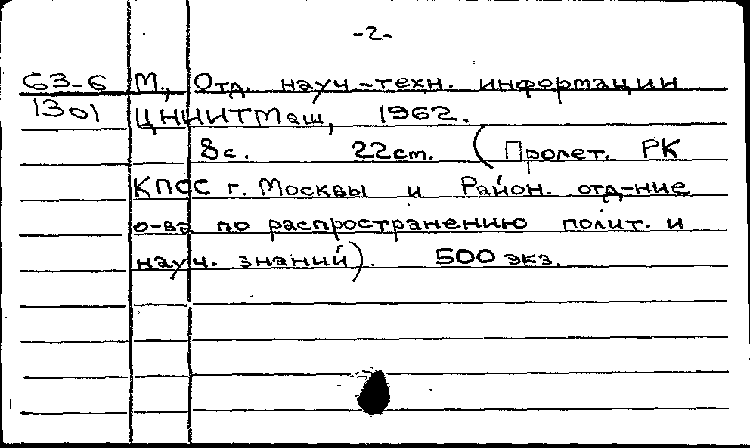 -2-
63-6 М., Отд. науч-техн. информации
1301 ЦНИИТМаш, 1962.
8с. 22cm. (Пролет. РК
КПСС г. Москвы и Район. отд-ние
о-ва по распространению полит. и
науч. знаний). 500 экз.